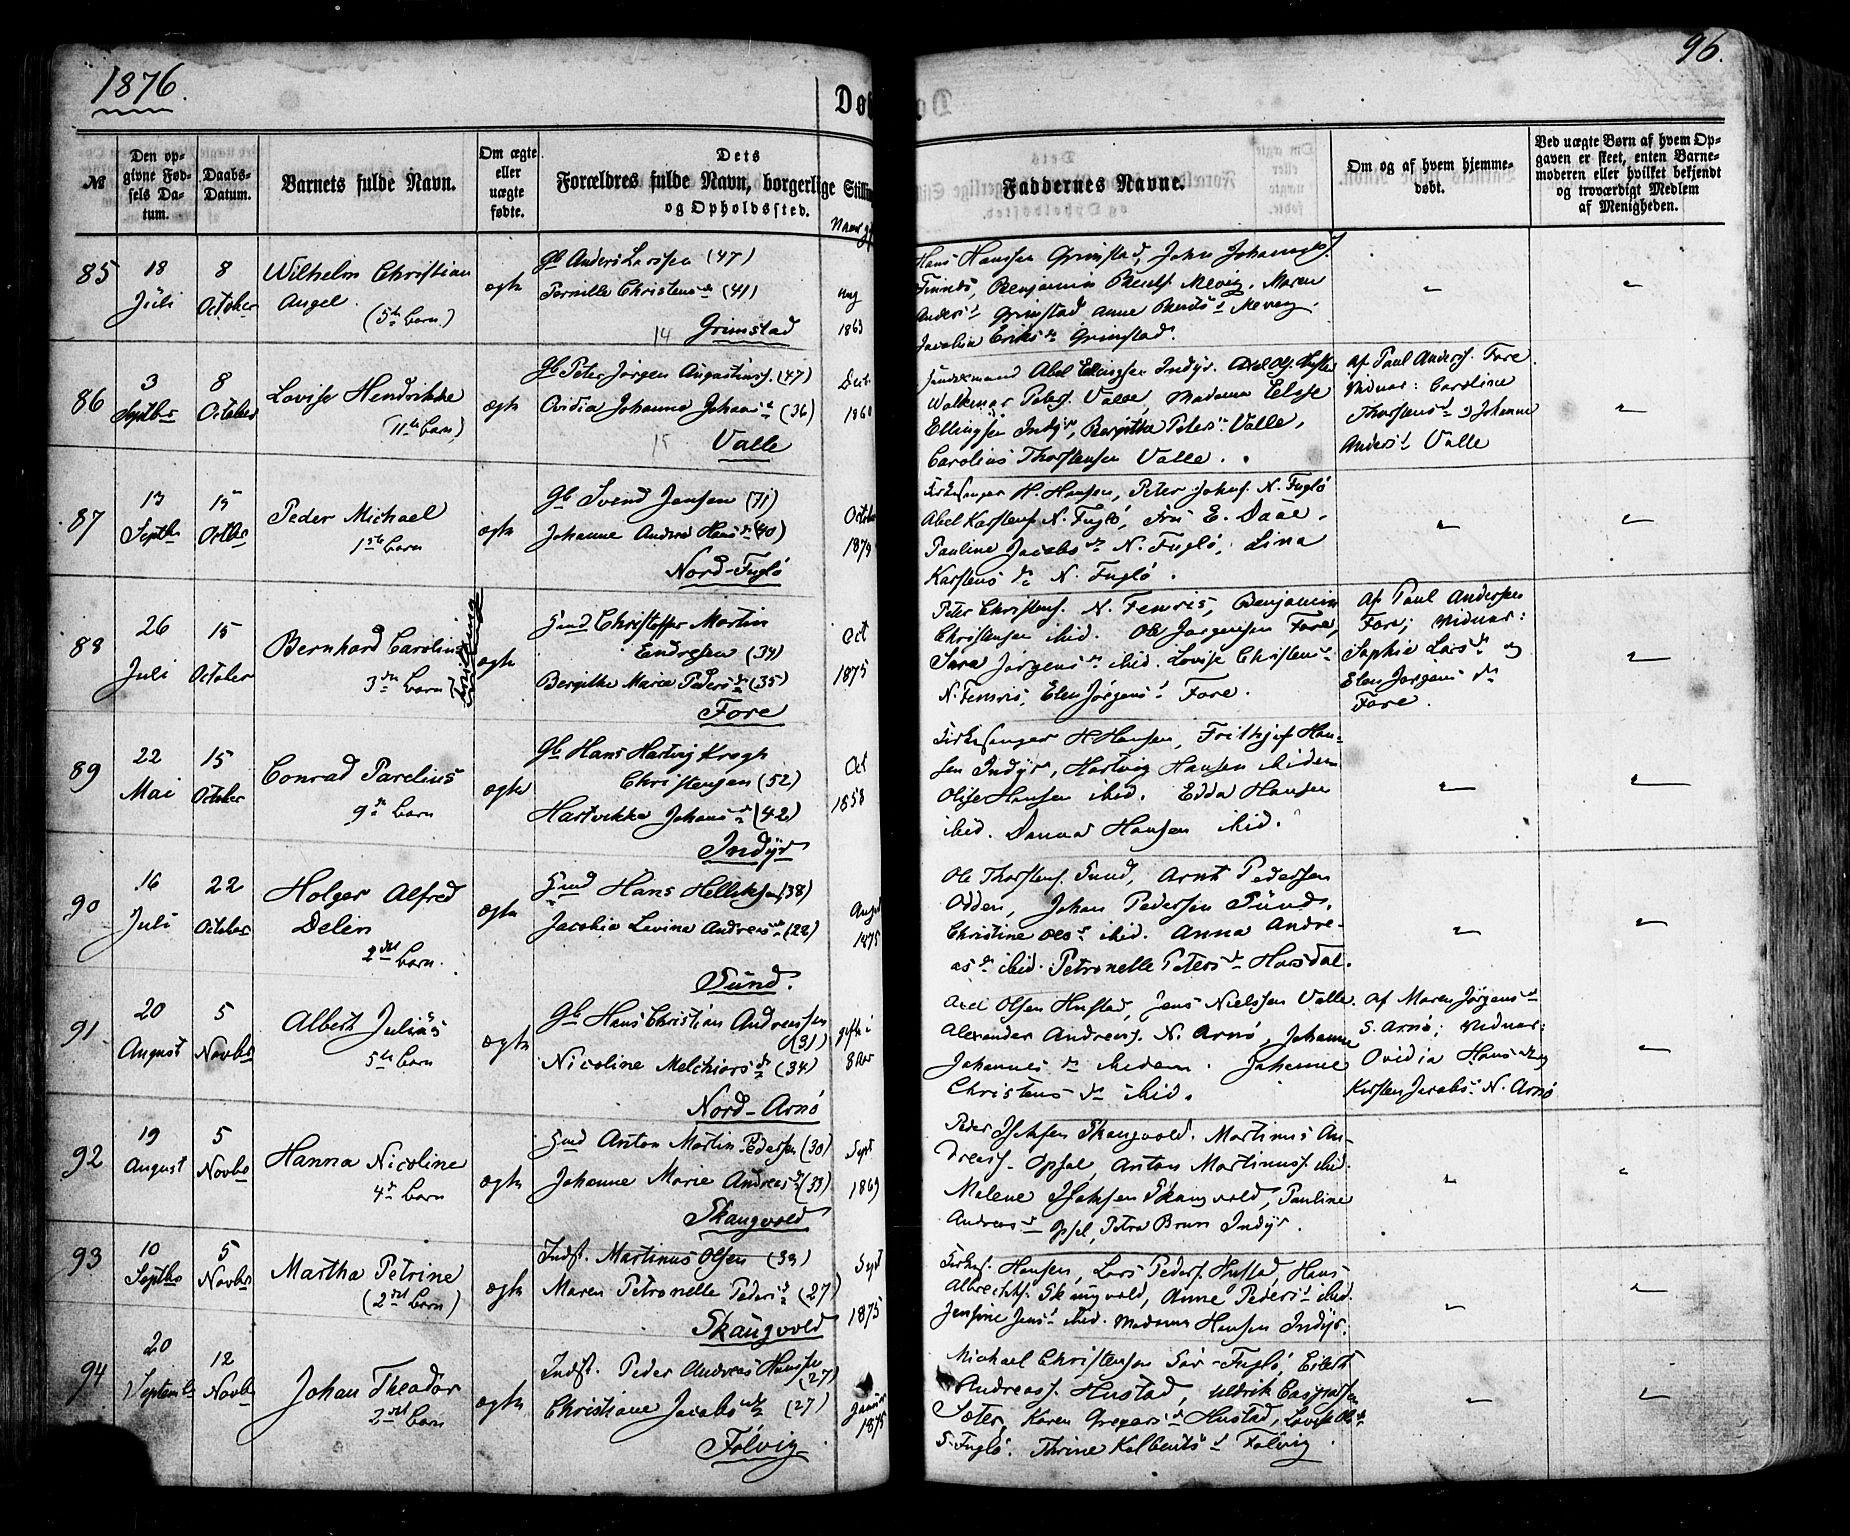 1876.
96.
Dø
№
Den op-
givne Fød-
sels Da-
tum.
Daabs-
Datum.
Barnets fulde Navn.
Om ægte
eller
uægte
fødte.
Dets
Forældres fulde Navn, borgerlige Stillin
og Opholdssted.
Faddernes Navne.
Om og af hvem hjemme-
døbt.
Ved uægte Børn af hvem Op-
gaven er skeet, enten Barne-
moderen eller hvilket bekjendt
og troværdigt Medlem
af Menigheden.
85
18
Juli
8
October
Wilhelm Christian
Angel.
(5te barn.)
ægte
Gb Anders Larsen (47)
Pernille Christensd (41)
14 Grimstad
1863
Hans Hanssen Grimstad, John Johannes.
Finnes, Benjamin Mevig. Maren
Anders Grimstad Anne Mevig.
Jacobia Eriksd Grimstad.
86
3
Septbr
8
October
Lovise Hendrikke
(11te barn)
ægte
Gb Peter Jørgen Augustinss. (47)
Ovidia Johanna Johansd (36)
15 Valle
Dect
1860
Abel Ellingsen Indyr.
Walkmar Peters. Valle, Madame
Ellingsen Indyr, Bergitha Peters Valle,
Carolius Thorstensen Valle.
Af Paul Anders. Fore.
Vidner: Caroline
Thorstensd og Johanne
Anders Valle
87
13
Septbr
15
Octbr
Peder Michael
1ste barn
ægte
Gb Svend Jensen (71)
Johanne Andrea Hansd (40)
Nord-Fuglø
October
Kirkesanger H. Hansen, Peter Johns. N. Fuglø
Abel Karstens N. Fuglø, Fru E. Daae.
Pauline Jacobsd N. Fuglø, Lina
Karstens d N. Fuglø.
88
26
Juli
15
October
Bernhard Carolius
3die barn
tvilling
ægte
Gmd Christoffer Martin
Endresen (34)
Bergithe Marie Pedersd (35)
Fore
Oct
1875
Peter Christens. N. Femris, Benjamin
Christensen ibid. Ole Jørgensen Fore,
Sara Jørgensd ibid. Lovise Christens
N. Femris, Elen Jørgens Fore.
Af Paul Andersen
Fore; Vidner:
Sophie Larsd og
Elen Jørgens d
Fore.
89
22
Mai
15
October
Conrad Parelius
9de barn
ægte
Gb Hans Hartvig Krogh
Christensen (52)
Hartvikka Johansd (42)
Indyr
Oct
1858
Kirkesanger H Hansen, Frithjof Han-
sen Indyr, Hartvig Hansen ibidem
Hansen ibid. Edda Hansen
ibid. Danna Hansen ibid.
90
16
Juli
22
October
Holger Alfred
Delin
2det barn.
ægte
Gmd Hans Helliksen (38)
Jacobia Levina Andreasd (22)
Sund.
August
1875
Ole Thorstens. Sund, Arnt Pedersen
Odden, Johan Pedersen Sund.
Christine Olsd ibid. Anna Andre-
asd ibid. Petronelle Petersd Horsdal.
91
20
August
5
Novbr
Albert Julius
5te barn
ægte
Gb Hans Christian Andreassen
(31)
Nicoline Melchiorsd (34)
Nord-Arnø
gift i
8 Aar
Axel Olsen Hustad, Jens Nielssen Valle.
Alexander Andreass. N. Arnø, Johanne
Johannes d ibidem. Johanne
Christens d ibid.
Af Maren Jørgens d
S. Arnø; Vidner:
Ovidia Hansd og
Karsten Jacobs N. Arnø
92
19
August
5
Novbr
Hanna Nicoline
4de barn
ægte
Gmd Anton Martin Pedersen (30)
Johanne Marie Andreasd (33)
Skaugvold
Sept
1869
Peder Skaugvold. Martinus An-
dreass. Opsal, Anton Martinuss. ibid.
Melene Skaugvold, Pauline
Andreasd Opsl, Petra Bruun Indyr.
93
10
Septbr
5
Novbr
Martha Petrine
(2det barn)
ægte
Indst. Martinus Olsen (39)
Maren Petronelle Pedersd (27)
Skaugvold
Sept
1875
Kirkes. Hansen, Lars Peders. Hustad, Hans
Albrechts. Skaugvold, Anne Peders ibid.
Jensine Jens ibid. Madame Hansen Indyr.
94
20
Septembr
12
Novbr
Johan Theodor
2det barn
ægte
Indst. Peder Andreas Hanssen
(27)
Christiane Jacobsd (27)
Følvig
Januar
1875
Michael Christensen Sør-Fuglø, Eilert
Andreass. Hustad, Uldrik Casparsen
Sæter, Karen Gregersd Hustad, Lovise Olsd
S. Fuglø. Thrine Kolbents Følvig.